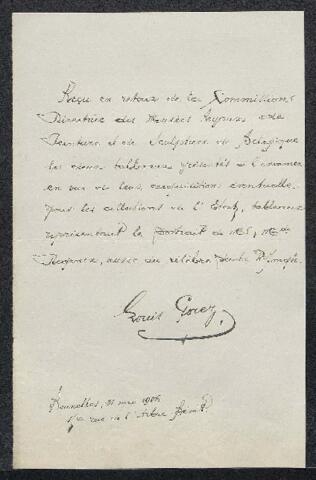 Reçu en retour de la Commission
Directrice des Musées royaux de
Peinture et de Sculpture de Belgique
les deux tableaux présentés à l'examen
en vue de leur acquisition éventuelle
pour les collections de l'Etat, tableaux
représentant le portrait de Mr & Mme
du célèbre peintre
Louis Gorez
Bruxelles, 21 mai 1906
rue de l'Arbre Bénit